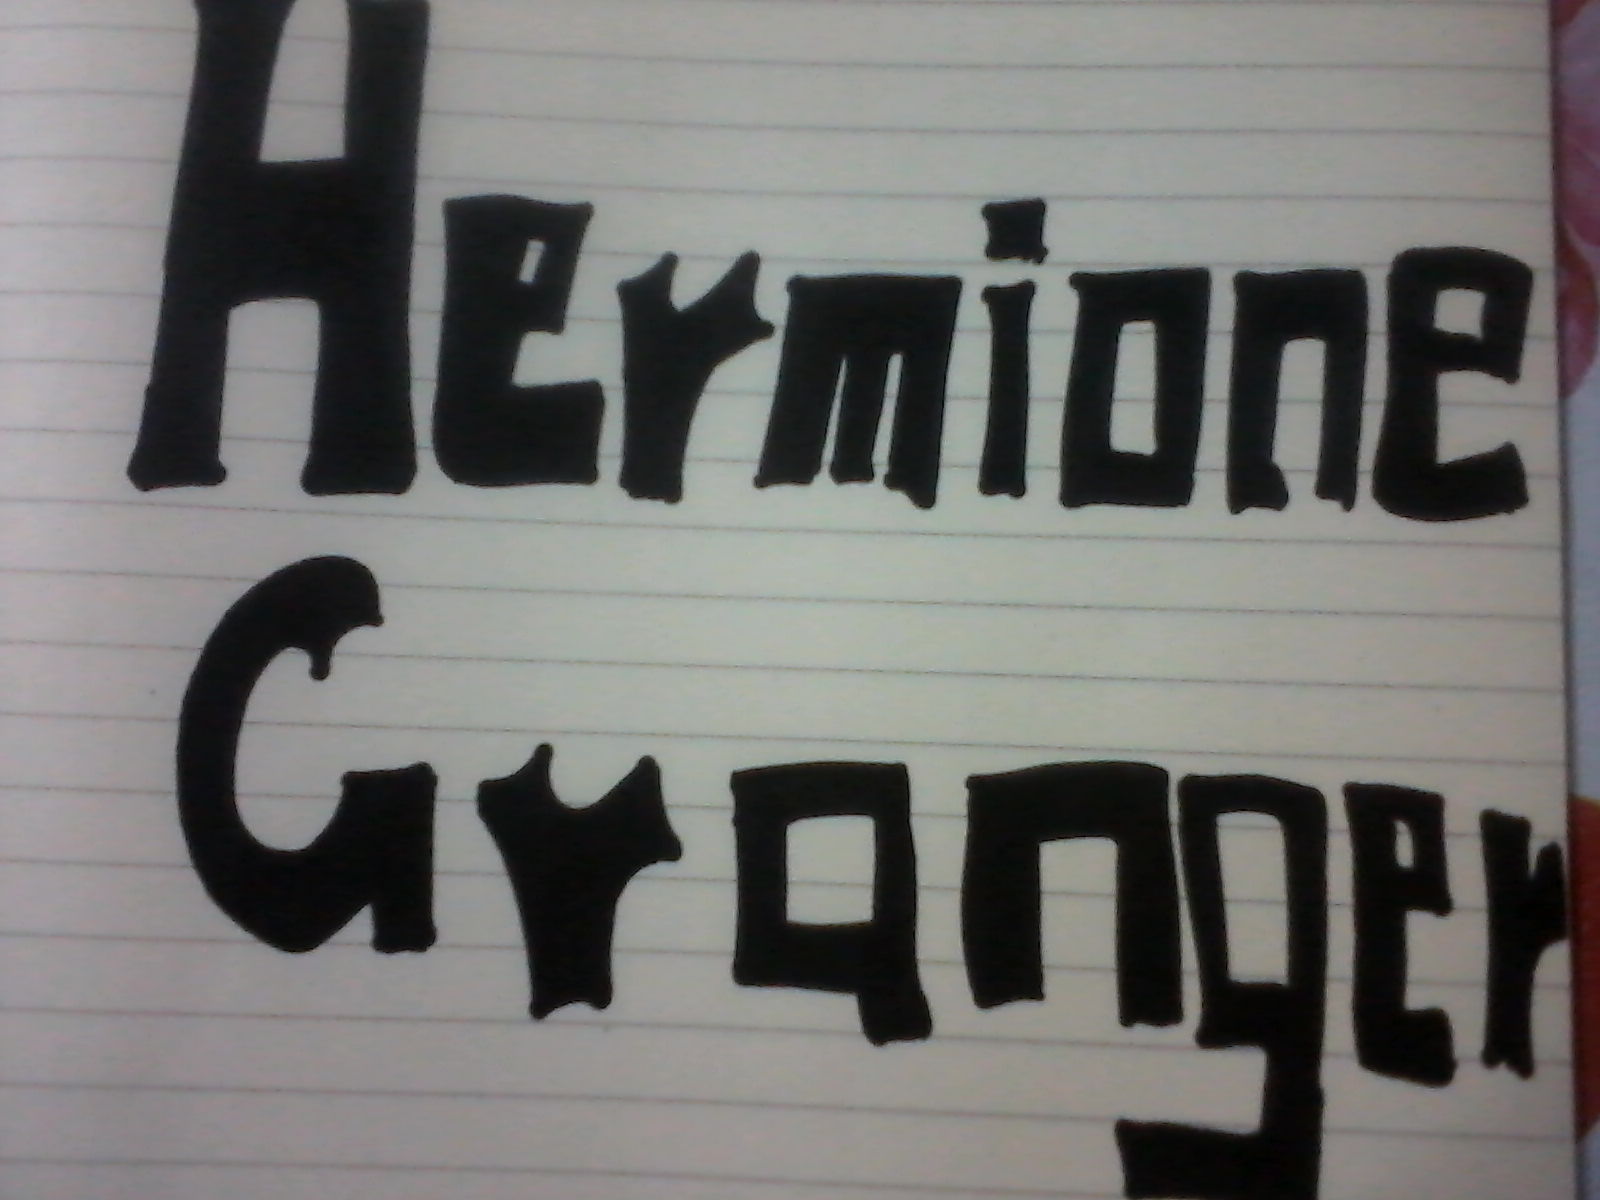 Hermione
Granger